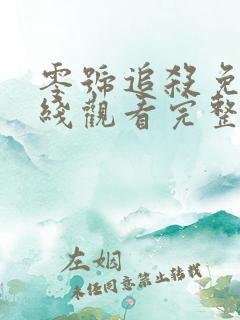 零號追殺免
綫觀看完整
左姻
未任同意禁止转载